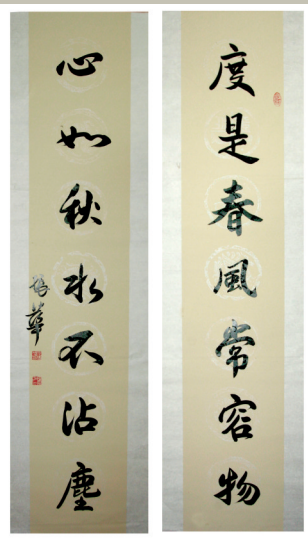 度是春風常容物
心如秋水不沾塵